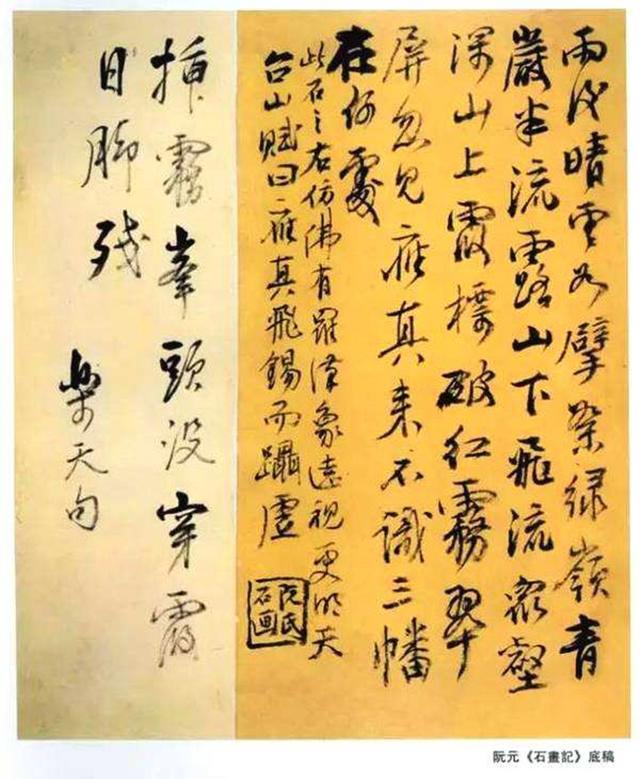 雨後晴雲如擘絮綠嶺青
巖半流露山下飛流眾壑
深山上霞標破紅霧翠
屏忽見應真来不識三幡
在何處
此石之右仿佛有羅漢象遠視更明天
台山賦曰應真飛錫而躡虛
阮氏
石画
插霧峯頭没穿霞
日脚残
樂天句
阮元《石畫記》底稿